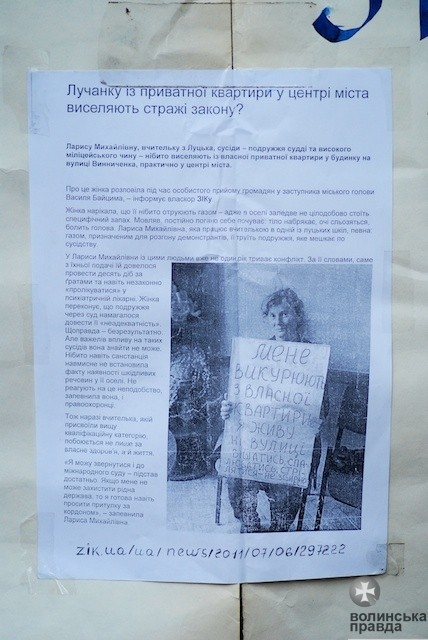 Лучанку із приватної квартири у центрі міста
виселяють стражі закону?
Ларису Михайлівну, вчительку з Луцька, сусіди – подружжя судді та високого
міліцейського чину – нібито виселяють із власної приватної квартири у будинку на
вулиці Винниченка, практично у центрі міста.
Про це жінка розповіла під час особистого прийому громадян у заступника міського голови
Василя Байцима, – інформує власкор ЗІКу
Жінка нарікала, що її нібито отруюють газом – адже в оселі заледве не цілодобово стоїть
специфічний запах. Мовляв, постійно погано себе почуває: тіло набрякає, очі сльозяться,
болить голова. Лариса Михайлівна, яка працює вчителькою в одній із луцьких шкіл, певна:
газом, призначеним для розгону демонстрантів, її труїть подружжя, яке мешкає по
сусідству.
У Лариси Михайлівни із цими людьми вже не один рік триває конфлікт. За її словами, саме
з їхньої подачі їй довелося
провести десять діб за
ґратами та навіть незаконно
«пролікуватися» у
психіатричній лікарні. Жінка
переконує, що подружжя
через суд намагалося
довести її «неадекватність».
Щоправда – безрезультатно.
Але важелів впливу на таких
сусідів вона знайти не може.
Нібито навіть санстанція
навмисне не встановила
факту наявності шкідливих
речовин у її оселі. Не
реагують на це неподобство,
запевнила вона, і
правоохоронці.
Тож наразі вчителька, якій
присвоїли вищу
кваліфікаційну категорію,
побоюється не лише за
власне здоров'я, а й життя.
«Я можу звернутися і до
міжнародного суду – підстав
достатньо. Якщо мене не
може захистити рідна
держава, то я готова навіть
просити притулку за
кордоном», – запевнила
Лариса Михайлівна
МЕНЕ
ВИКУРЮЮТЬ
З ВЛАСНОЇ
КВАРТИРИ
ЖИВУ
НА ВУЛИЦІ
zik.ua/ua/news/2011/07/06/297222
ВОЛИНСЬКА
ПРАВДА